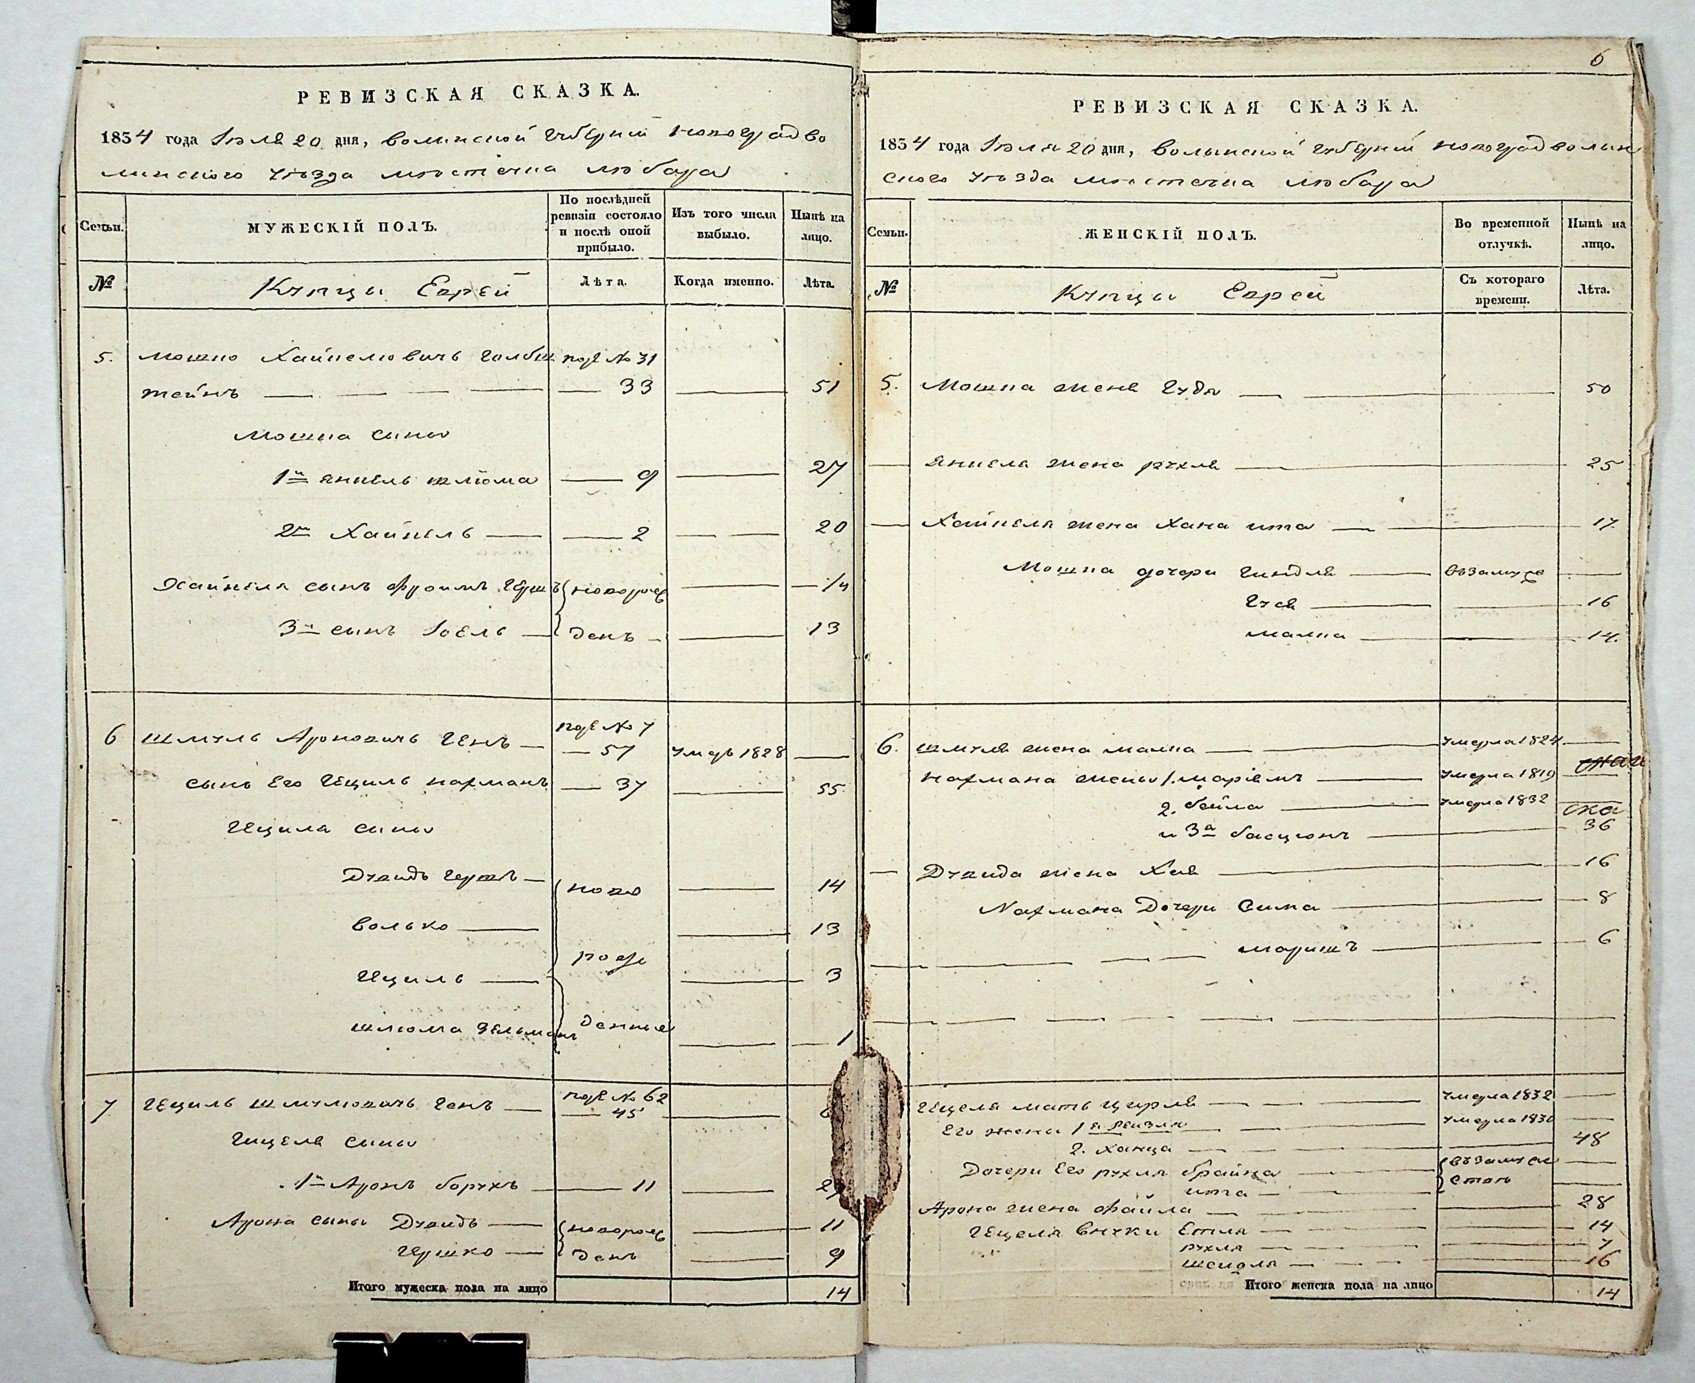 РЕВИЗСКАЯ СКАЗКА.
1854 года Іюля 20 дня, Волынской Губерніи Новоградво
линского уѣзда мѣстечка Любара
Семьи.
МУЖЕСКІЙ ПОЛЪ.
По послѣдней ревизіи состояло и послѣ оной прибыло.
Изъ того числа выбыло.
Нынѣ на лицо.
№
Купцы Еврей
Лѣта.
Когда именно.
Лѣта.
5. Мошко Хаймелювичъ Голбш под № 31
тейнъ 33 51
Мошка сыны
1й Янкель Шлиома 9 27
2й Хаймель 2 20
Хаймеля сынъ Фроимъ Гершъ новорож 1/4
3й сынъ Іоель денъ 13
6 Шмуль Ароновичъ Генъ под № 7
57 умеръ 1828
сынъ Его Гециль Нахманъ 37 55
Гециля сыны
Дувидъ Гершъ ново 14
Волько 13
рож
Ициль 3
Шлиома Зельманъ денные 1
7 Гециль Шмулювичъ Генъ под № 62
45
Гецеля сыны
1й Аронъ Борухъ 11
Арона сыны Дувидъ новорож 11
Гершко денъ 9
Итого мужеска пола на лицо 14
6
РЕВИЗСКАЯ СКАЗКА.
1854 года Іюля 20 дня, Волынской Губерніи Новоградволын
ского уѣзда мѣстечка Любара
Семьи.
ЖЕНСКІЙ ПОЛЪ.
Во временной отлучкѣ.
Нынѣ на лицо.
№
Купцы Еврей
Съ котораго времени.
Лѣта.
5. Мошка жена Гудя 50
Янкеля жена Рухля 25
Хаймеля жена Хана Ита 17
Мошка дочери Гиндля въ замуже
Гуся 16
Малка 14.
6. Шмуля жена Малка умерла 1824
Нахмана жены 1. Маріемъ умерла 1819
2. Бейла умерла 1832
и 3а Басціонъ 36
Дувида жена Хая 16
Нахмана Дочери Сима 8
Маришъ 6
Гецеля мать Цирля умерла 1832
Его жены 1я Рейзля умерла 1830
2. Ханца 48
Дочери Его Рухля Брайна въ замуже
Ита ствѣ
Арона жена Файла 28
Гецеля внуки Етля 14
Рухля 7
Шейдля 16
Итого женска пола на лицо 14